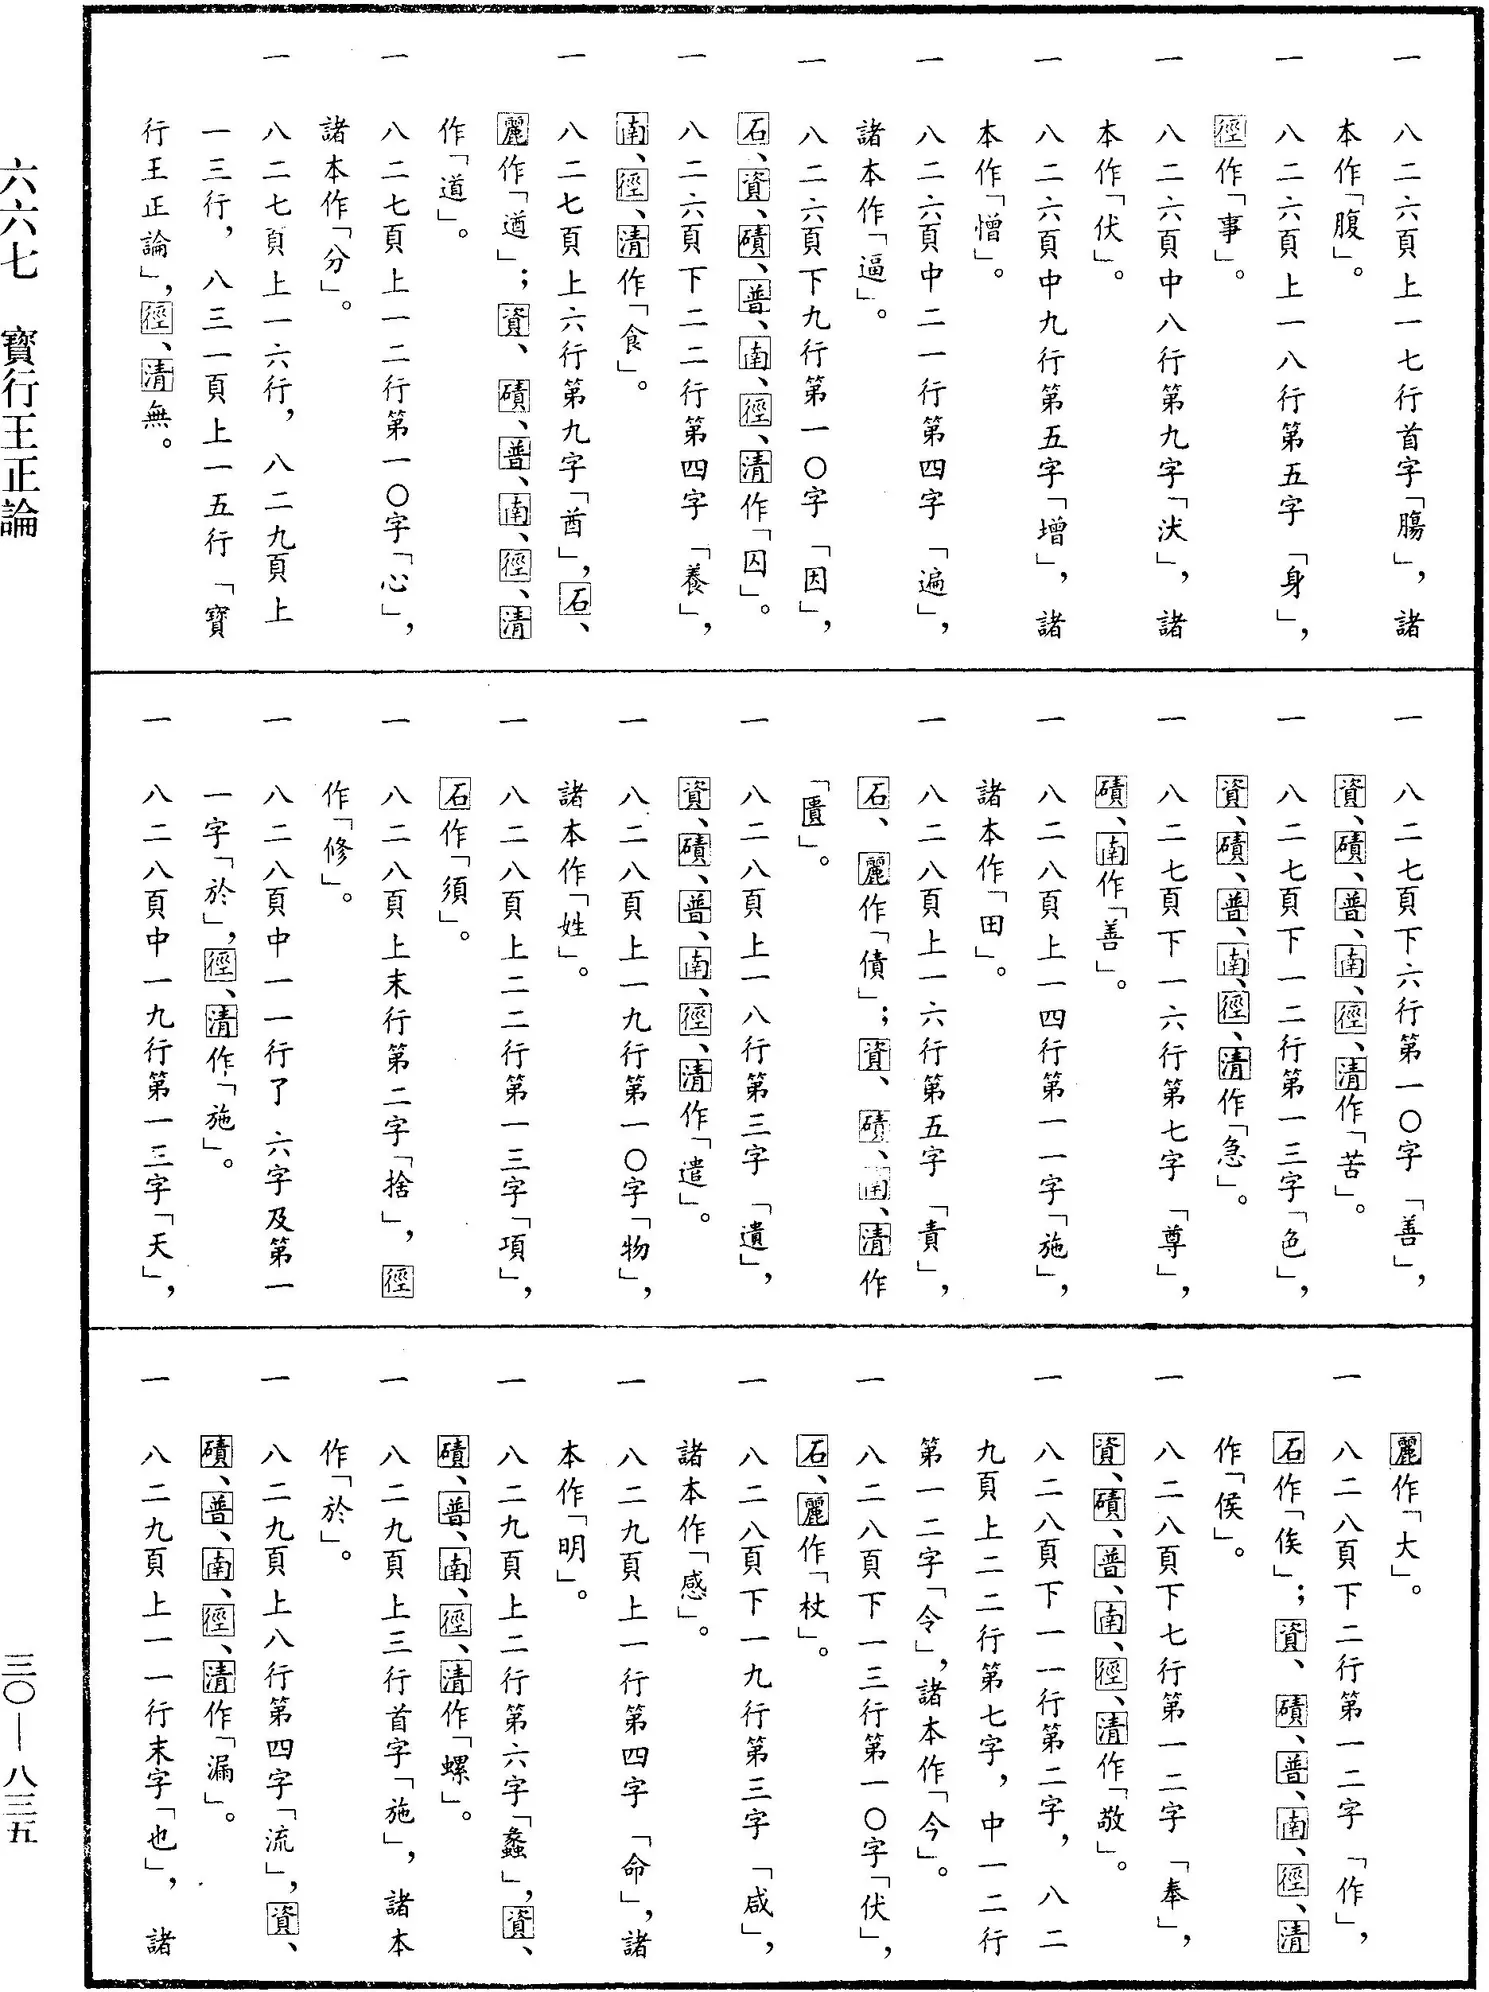 一　八二六頁上一七行首字「腸」，諸
本作「腹」。
一　八二六頁上一八行第五字「身」，
徑作「事」。
一　八二六頁中八行第九字「洑」，諸
本作「伏」。
一　八二六頁中九行第五字「增」，諸
本作「憎」。
一　八二六頁中二一行第四字「遍」，
諸本作「逼」。
一　八二六頁下九行第一〇字「因」，
石、資、磧、普、南、徑、清作「囚」。
一　八二六頁下二二行第四字「養」，
南、徑、清作「食」。
一　八二七頁上六行第九字「酋」，石、
麗作「遒」；資、磧、普、南、徑、清
作「道」。
一　八二七頁上一二行第一〇字「心」，
諸本作「分」。
一　八二七頁上一六行，八二九頁上
一三行，八三一頁上一五行「寶
行王正論」，徑、清無。
一　八二七頁下六行第一〇字「善」，
資、磧、普、南、徑、清作「苦」。
一　八二七頁下一二行第一三字「色」，
資、磧、普、南、徑、清作「急」。
一　八二七頁下一六行第七字「尊」，
磧、南作「善」。
一　八二八頁上一四行第一一字「施」，
諸本作「田」。
一　八二八頁上一六行第五字「責」，
石、麗作「債」；資、磧、南、清作
「匱」。
一　八二八頁上一八行第三字「遺」，
資、磧、普、南、徑、清作「遣」。
一　八二八頁上一九行第一〇字「物」，
諸本作「姓」。
一　八二八頁上二二行第一三字「項」，
石作「須」。
一　八二八頁上末行第二字「捨」，徑
作「修」。
一　八二八頁中一一行了六字及第一
一字「於」，徑、清作「施」。
一　八二八頁中一九行第一三字「天」，
麗作「大」。
一　八二八頁下二行第一二字「作」，
石作「俟」；資、磧、普、南、徑、清
作「侯」。
一　八二八頁下七行第一二字「奉」，
資、磧、普、南、徑、清作「敬」。
一　八二八頁下一一行第二字，八二
九頁上二二行第七字，中一二行
第一二字「令」，諸本作「今」。
一　八二八頁下一三行第一〇字「伏」，
石、麗作「杖」。
一　八二八頁下一九行第三字「咸」，
諸本作「感」。
一　八二九頁上一行第四字「命」，諸
本作「明」。
一　八二九頁上二行第六字「蠡」，資、
磧、普、南、徑、清作「螺」。
一　八二九頁上三行首字「施」，諸本
作「於」。
一　八二九頁上八行第四字「流」，資、
磧、普、南、徑、清作「漏」。
一　八二九頁上一一行末字「也」，諸
六六七　寶行王正論
三〇—八三五